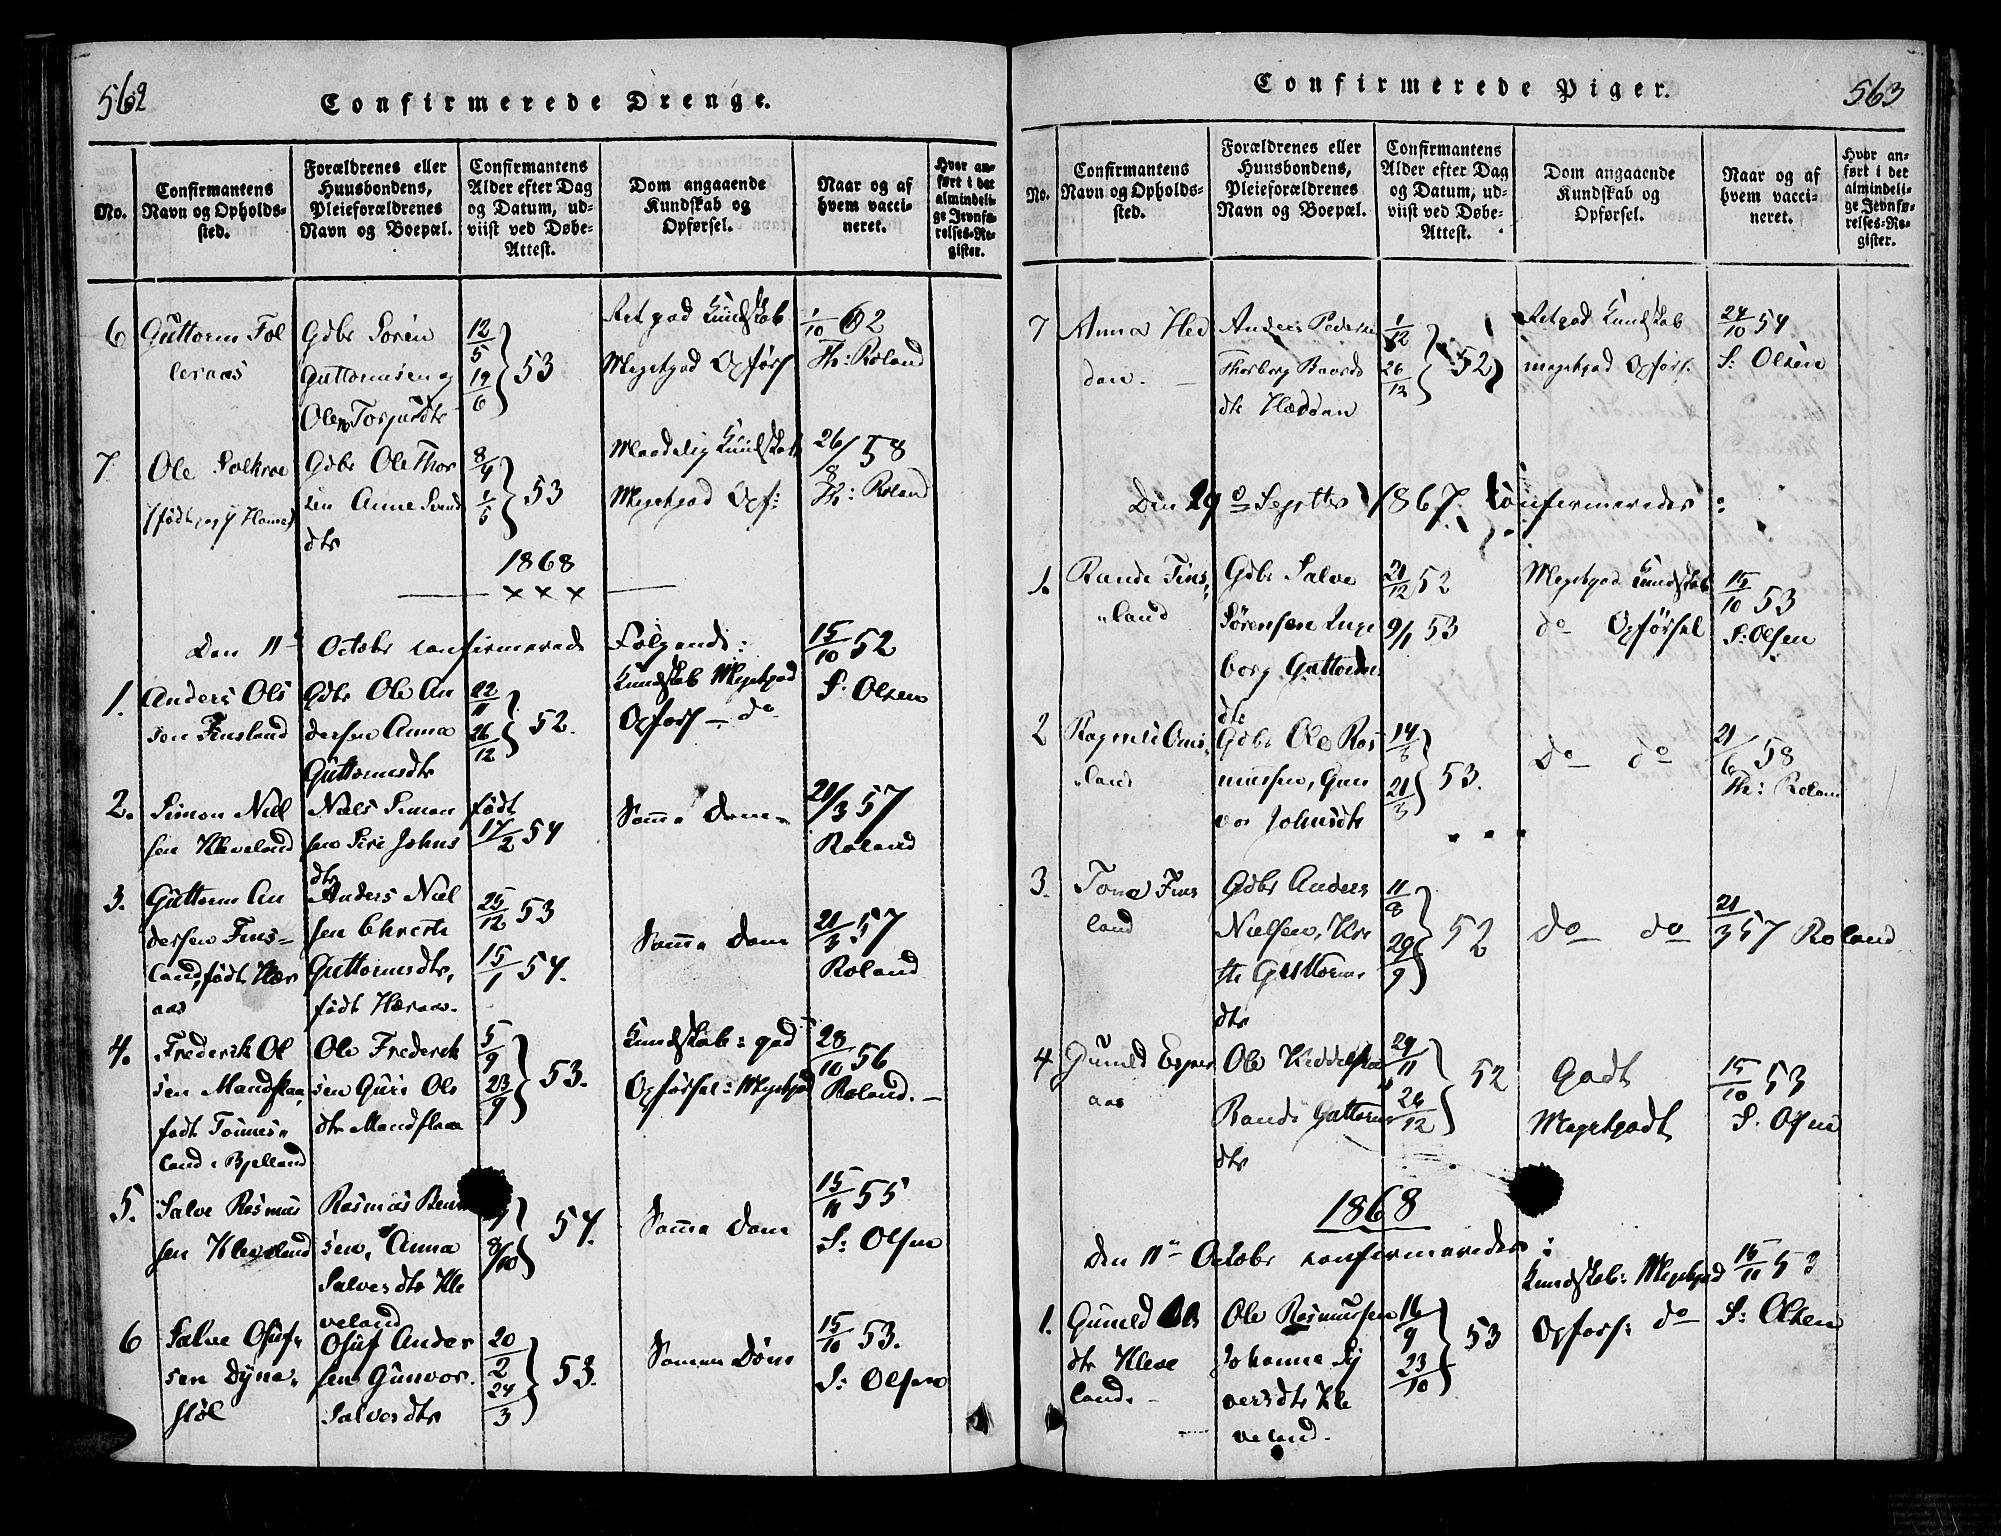 562
Confirmerede Drenge.
No.
Confirmantens
Navn og Opholds-
sted.
Forældrenes eller
Huusbondens,
Pleieforældrenes
Navn og Boepæl.
Confirmantens
Alder efter Dag
og Datum, ud-
viist ved Døbe-
Attest.
Dom angaaende
Kundskab og
Opførsel.
Naar og af
hvem vacci-
neret.
Hvor an-
ført i det
almindeli-
ge Jevnfø-
relses-Re-
gister.
6 Guttorm Fol
leraas
Gdbr Sören
Guttormsen og
Olene Torjusdtr
12/5 19/6 53
Retgod Kundskab
Megetgod Opförs
1/10 62
Th: Roland
7. Ole
Gdbr Ole Thor
sen Anne Svends
dtr
8/4 1/5 53
Maadelig Kundskab
Megetgod Opf:
26/8 58
Th: Roland
1868
x x x
Den 11te Octobr confirmerede Følgende:
1. Anders Ols
son Finsland
Gdbr Ole An
dersen Anna
Guttormsdtr
22/11 26/12 52.
Kundskab Megetgod
Opförs – do
15/10 52
S. Olsen
2. Simon Niel
sen Kleveland
Niels Simon
sen Siri Johns
dtr
født
17/2 54
Samme Dom
21/3 57
Roland
3. Guttorm An
dersen Fins-
land, født Hær
aas
Anders Niel
sen Chreste
Guttormsdtr,
født Hæraas.
25/12 53
15/1 54.
Samme Dom
21/3 57
Roland
4. Frederik Ol
sen Mandflaa,
født Tonnes-
land i Bjelland
Ole Frederik
sen Guri Ols
dtr Mandflaa
5/9 23/9 53.
Kundskab: god
Opførsel: Megetgod
28/10 56
Roland. –
5. Salve Rasmus
sen Kleveland
Rasmus
sen, Anna
Salvesdtr Kle
veland
8/10 54.
Samme Dom
15/11 55
S: Olsen
6 Salve Osuf-
sen Dyne-
støl
Osuf Ander
sen Gunvor
Salvesdtr
20/2 24/3 53.
Samme Dom
15/10 53.
S: Olsen
563
Confirmerede Piger.
No.
Confirmantens
Navn og Opholds-
sted.
Forældrenes eller
Huusbondens,
Pleieforældrenes
Navn og Boepæl.
Confirmantens
Alder efter Dag
og Datum, ud-
viist ved Døbe-
Attest.
Dom angaaende
Kundskab og
Opførsel.
Naar og af
hvem vacci-
neret.
Hvor an-
ført i det
almindeli-
ge Jevnfø-
relses-Re-
gister.
7 Anna Hed
dan. –
Anders Peders
Thorborg Baards
dtr Hæddan
1/12 26/12 52
Retgod Kundskab
megetgod Opförs.
24/10 54
S: Olsen
Den 29de Septbr 1867 Confirmeredes:
1. Rande Fins-
land
Gdbr Salve
Sørensen Inge
borg Guttorms
dtr
21/12 52
9/1 53
Megetgod Kundskab
do Opförsel
15/10 53
S: Olsen
2 Ragnild
land
Gdbr Ole Ras
mussen, Gun
vor Johnsdtr
14/3 21/3 53.
Do do
21/6 58
Th: Roland
3. Tona Fins
land
Gdbr Anders
Nielsen, Kre
ste Guttorms
dtr
11/8 29/9 52
Do do
21/3 57 Roland
4 Gunild
aas
Ole
Rande Guttorms
dtr
29/11 26/12 52
Godt
Megetgodt
15/10 53
S. Olsen
1868
Den 11te Octobr confirmeredes:
1. Gunild Ols
dtr Kleve
land. –
Ole Rasmussen
Johanne Sy
versdtr Kle
veland.
16/9 23/10 53
Kundskab: Megetgod
Opförs: do
15/11 53
S: Olsen